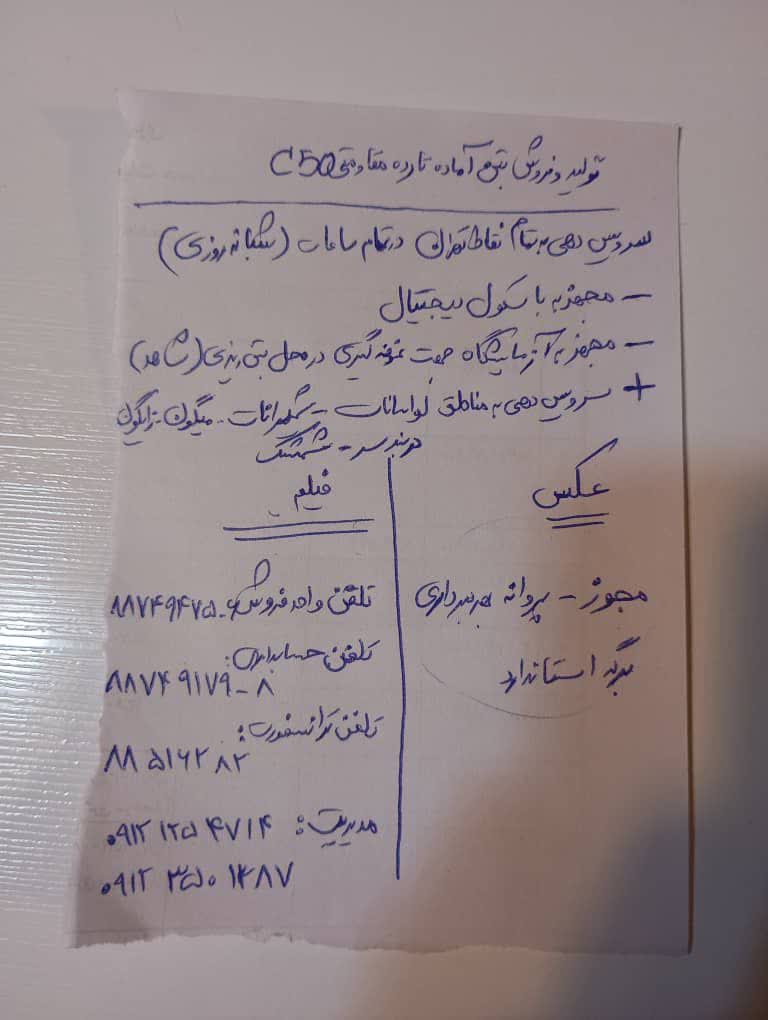 تولید و فروش بتن آماده تا رده مقاومتی C50
سرویس دهی به تمام نقاط تهران در تمام ساعات (شبانه روزی)
– مجهز به باسکول دیجیتال
– مجهز به آزمایشگاه جهت نمونه گیری در محل بتن ریزی (شاهد)
+ سرویس دهی به مناطق لواسانات - شمیرانات - میگون - زایگون
دربند سر - شمشک
عکس
مجوز – پروانه بهره برداری
برگه استاندارد
فیلم
تلفن واحد فروش: ۸۸۷۴۹۴۷۵
تلفن حسابداری:
۸۸۷۴۹۱۷۹-۸
تلفن ترانسفورت:
۸۸۵۱۶۲۸۲
مدیریت: ۰۹۱۲ ۱۲۵ ۴۷۱۴
۰۹۱۲ ۳۵۰